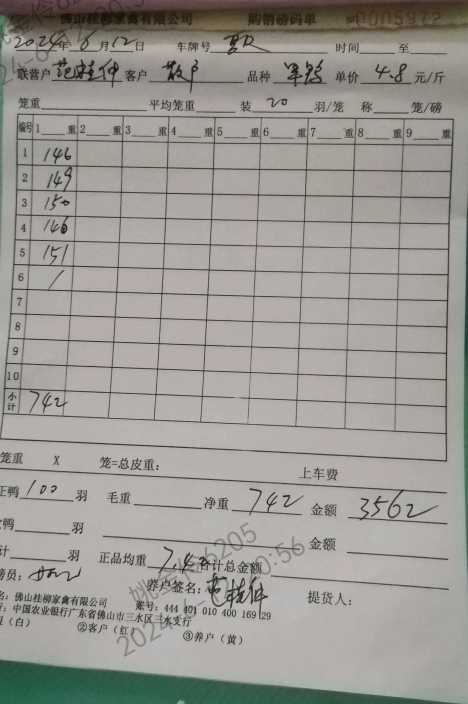 佛山桂柳家禽有限公司 购销磅码单 0005972
2024年6月12日 车牌号 时间 至
联营户 范桂仲 客户 散户 品种 单价 4.8 元/斤
笼重 平均笼重 装 20 羽/笼 称 笼/磅
编号 1 重 2 重 3 重 4 重 5 重 6 重 7 重 8 重 9 重
1 146
2 149
3 150
4 146
5 151
6 /
7
8
9
10
小计 742
笼重 X 笼=总皮重: 上车费
正鸭 100 羽 毛重 净重 742 金额 3562
鸭 羽 金额
计 羽 正品均重 7.42 合计总金额
磅员: 养户签名: 范桂仲 提货人:
名: 佛山桂柳家禽有限公司 账号: 444 401 010 400 169 29
行: 中国农业银行广东省佛山市三水区三水支行
(白) ②客户(红) ③养户(黄)
6205